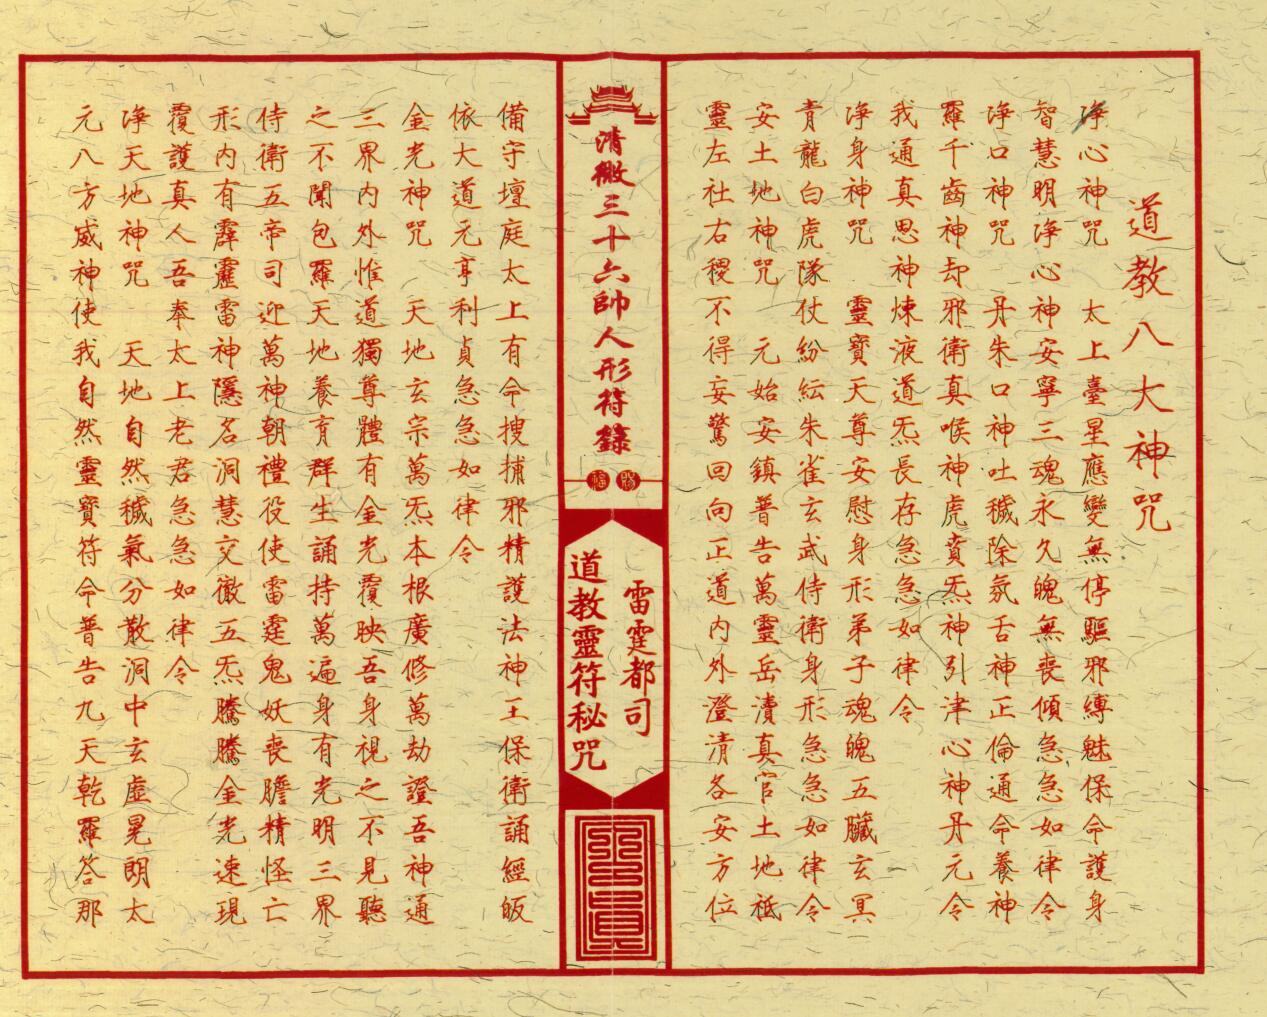 道教八大神咒
淨心神咒　太上臺星應變無停驅邪縛魅保命護身
智慧明淨心神安寧三魂永久魄無喪傾急急如律令
淨口神咒　丹朱口神吐穢除氛舌神正倫通命養神
羅千齒神却邪衛真喉神虎賁炁神引津心神丹元令
我通真思神煉液道炁長存急急如律令
淨身神咒　靈寶天尊安慰身形弟子魂魄五臟玄冥
青龍白虎隊仗紛紜朱雀玄武侍衛身形急急如律令
安土地神咒　元始安鎮普告萬靈岳瀆真官土地祗
靈左社右稷不得妄驚回向正道內外澄清各安方位
清微三十六帥人形符錄
雷霆都司
道教靈符秘咒
備守壇庭太上有命搜捕邪精護法神王保衛誦經皈
依大道元亨利貞急急如律令
金光神咒　天地玄宗萬炁本根廣修萬劫證吾神通
三界內外惟道獨尊體有金光覆映吾身視之不見聽
之不聞包羅天地養育群生誦持萬遍身有光明三界
侍衛五帝司迎萬神朝禮役使雷霆鬼妖喪膽精怪亡
形內有霹靂雷神隱名洞慧交徹五炁騰騰金光速現
覆護真人吾奉太上老君急急如律令
淨天地神咒　天地自然穢氣分散洞中玄虛晃朗太
元八方威神使我自然靈寶符命普告九天乾羅答那